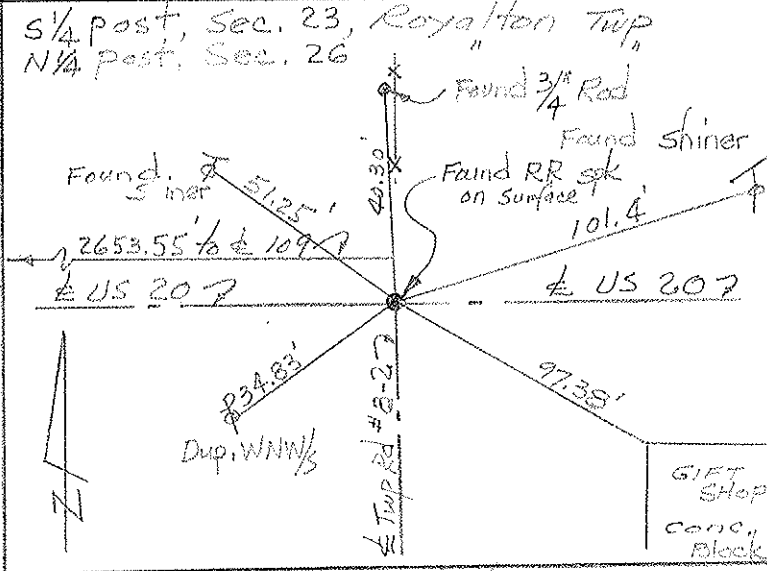 S 1/4 post, Sec. 23, Royalton Twp
N 1/4 post, Sec. 26 "  "
Found 3/4" Rod
Found Shiner
Found RR spk
on Surface
Found
51.25'
40.30'
101.4'
2653.55' to ℄ 109
℄ US 20
℄ US 20
34.83'
97.38'
Dup. WNW/s
℄ Twp Rd # 8-2
N
GIFT
SHOP
conc.
Block